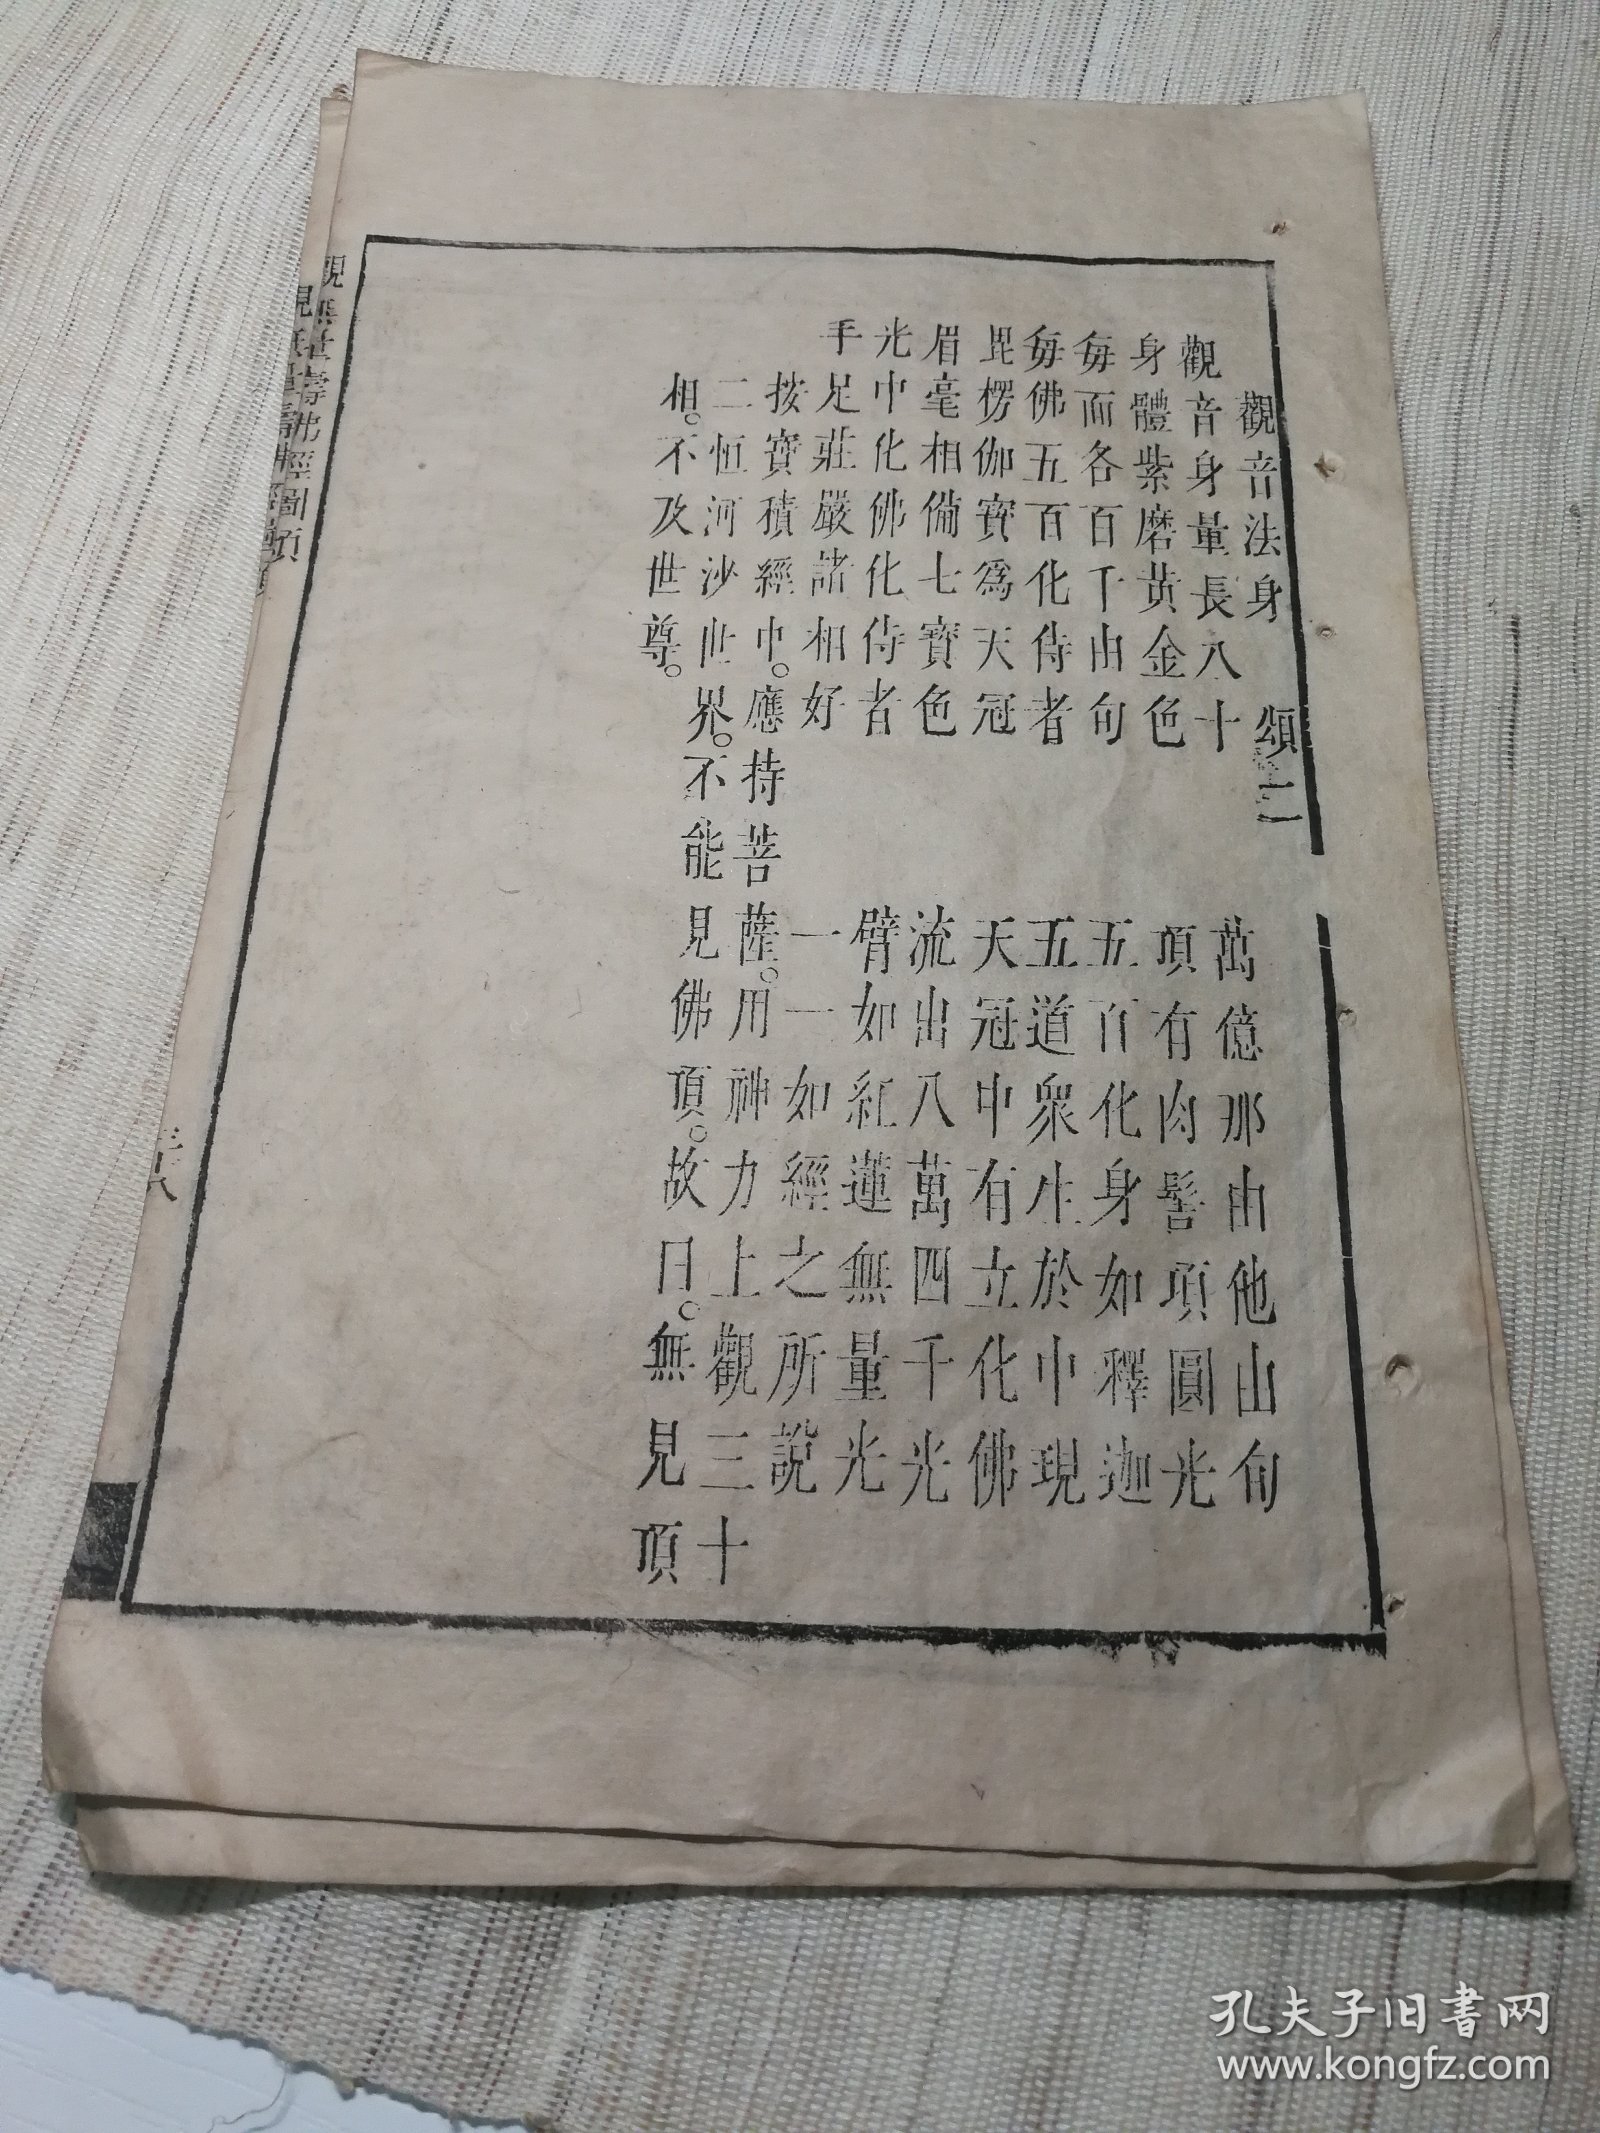 觀音法身　頌二
觀音身量長八十　萬億那由他由句
身體紫磨黃金色　頂有肉髻項圓光
每而各百千由旬　五百化身如釋迦
每佛五百化侍者　五道眾生於中現
毘楞伽寶為天冠　天冠中有立化佛
眉毫相備七寶色　流出八萬四千光
光中化佛化侍者　臂如紅蓮無量光
手足莊嚴諸相好　一一如經之所說
按寶積經中。應持菩薩。用神力上觀三十
二恒河沙世界。不能見佛頂。故曰。無見頂
相。不及世尊。
觀無量壽佛經圖頌
三八
孔夫子旧书网
www.kongfz.com